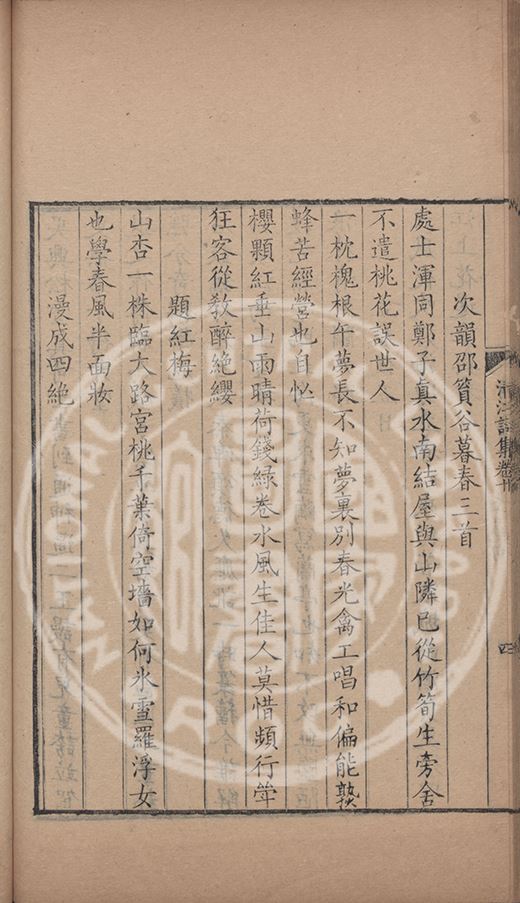 次韻邵簣谷暮春三首
處士渾同鄭子真水南結屋與山隣已從竹筍生旁舍
不遣桃花誤世人
一枕槐根午夢長不知夢裏別春光禽工唱和偏能熟
蜂苦經營也自忙
櫻顆紅垂山雨晴荷錢綠卷水風生佳人莫惜頻行斝
狂客從教醉絶纓
題紅梅
山杏一株臨大路宮桃千葉倚空墻如何氷雪羅浮女
也學春風半面妝
漫成四絶
四